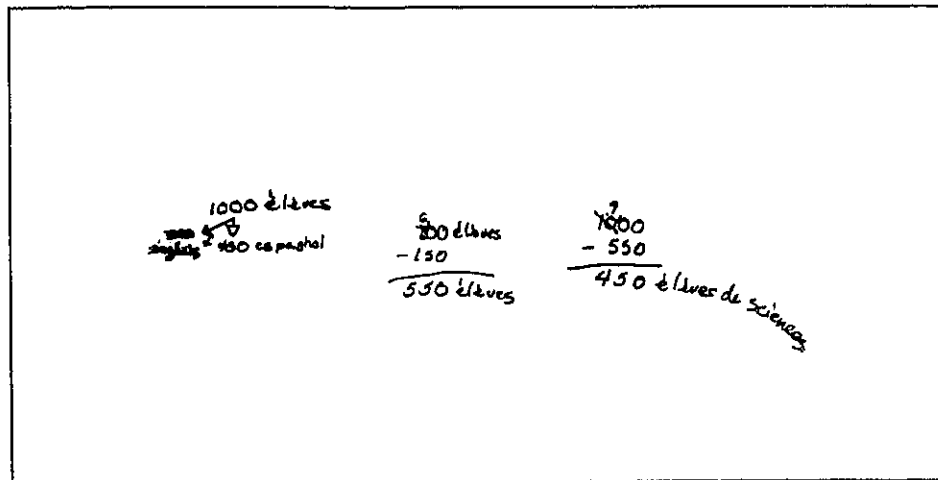 1000 élèves
150 espaghol
700 élèves
- 150
550 élèves
1000
- 550
450 élèves de sciences